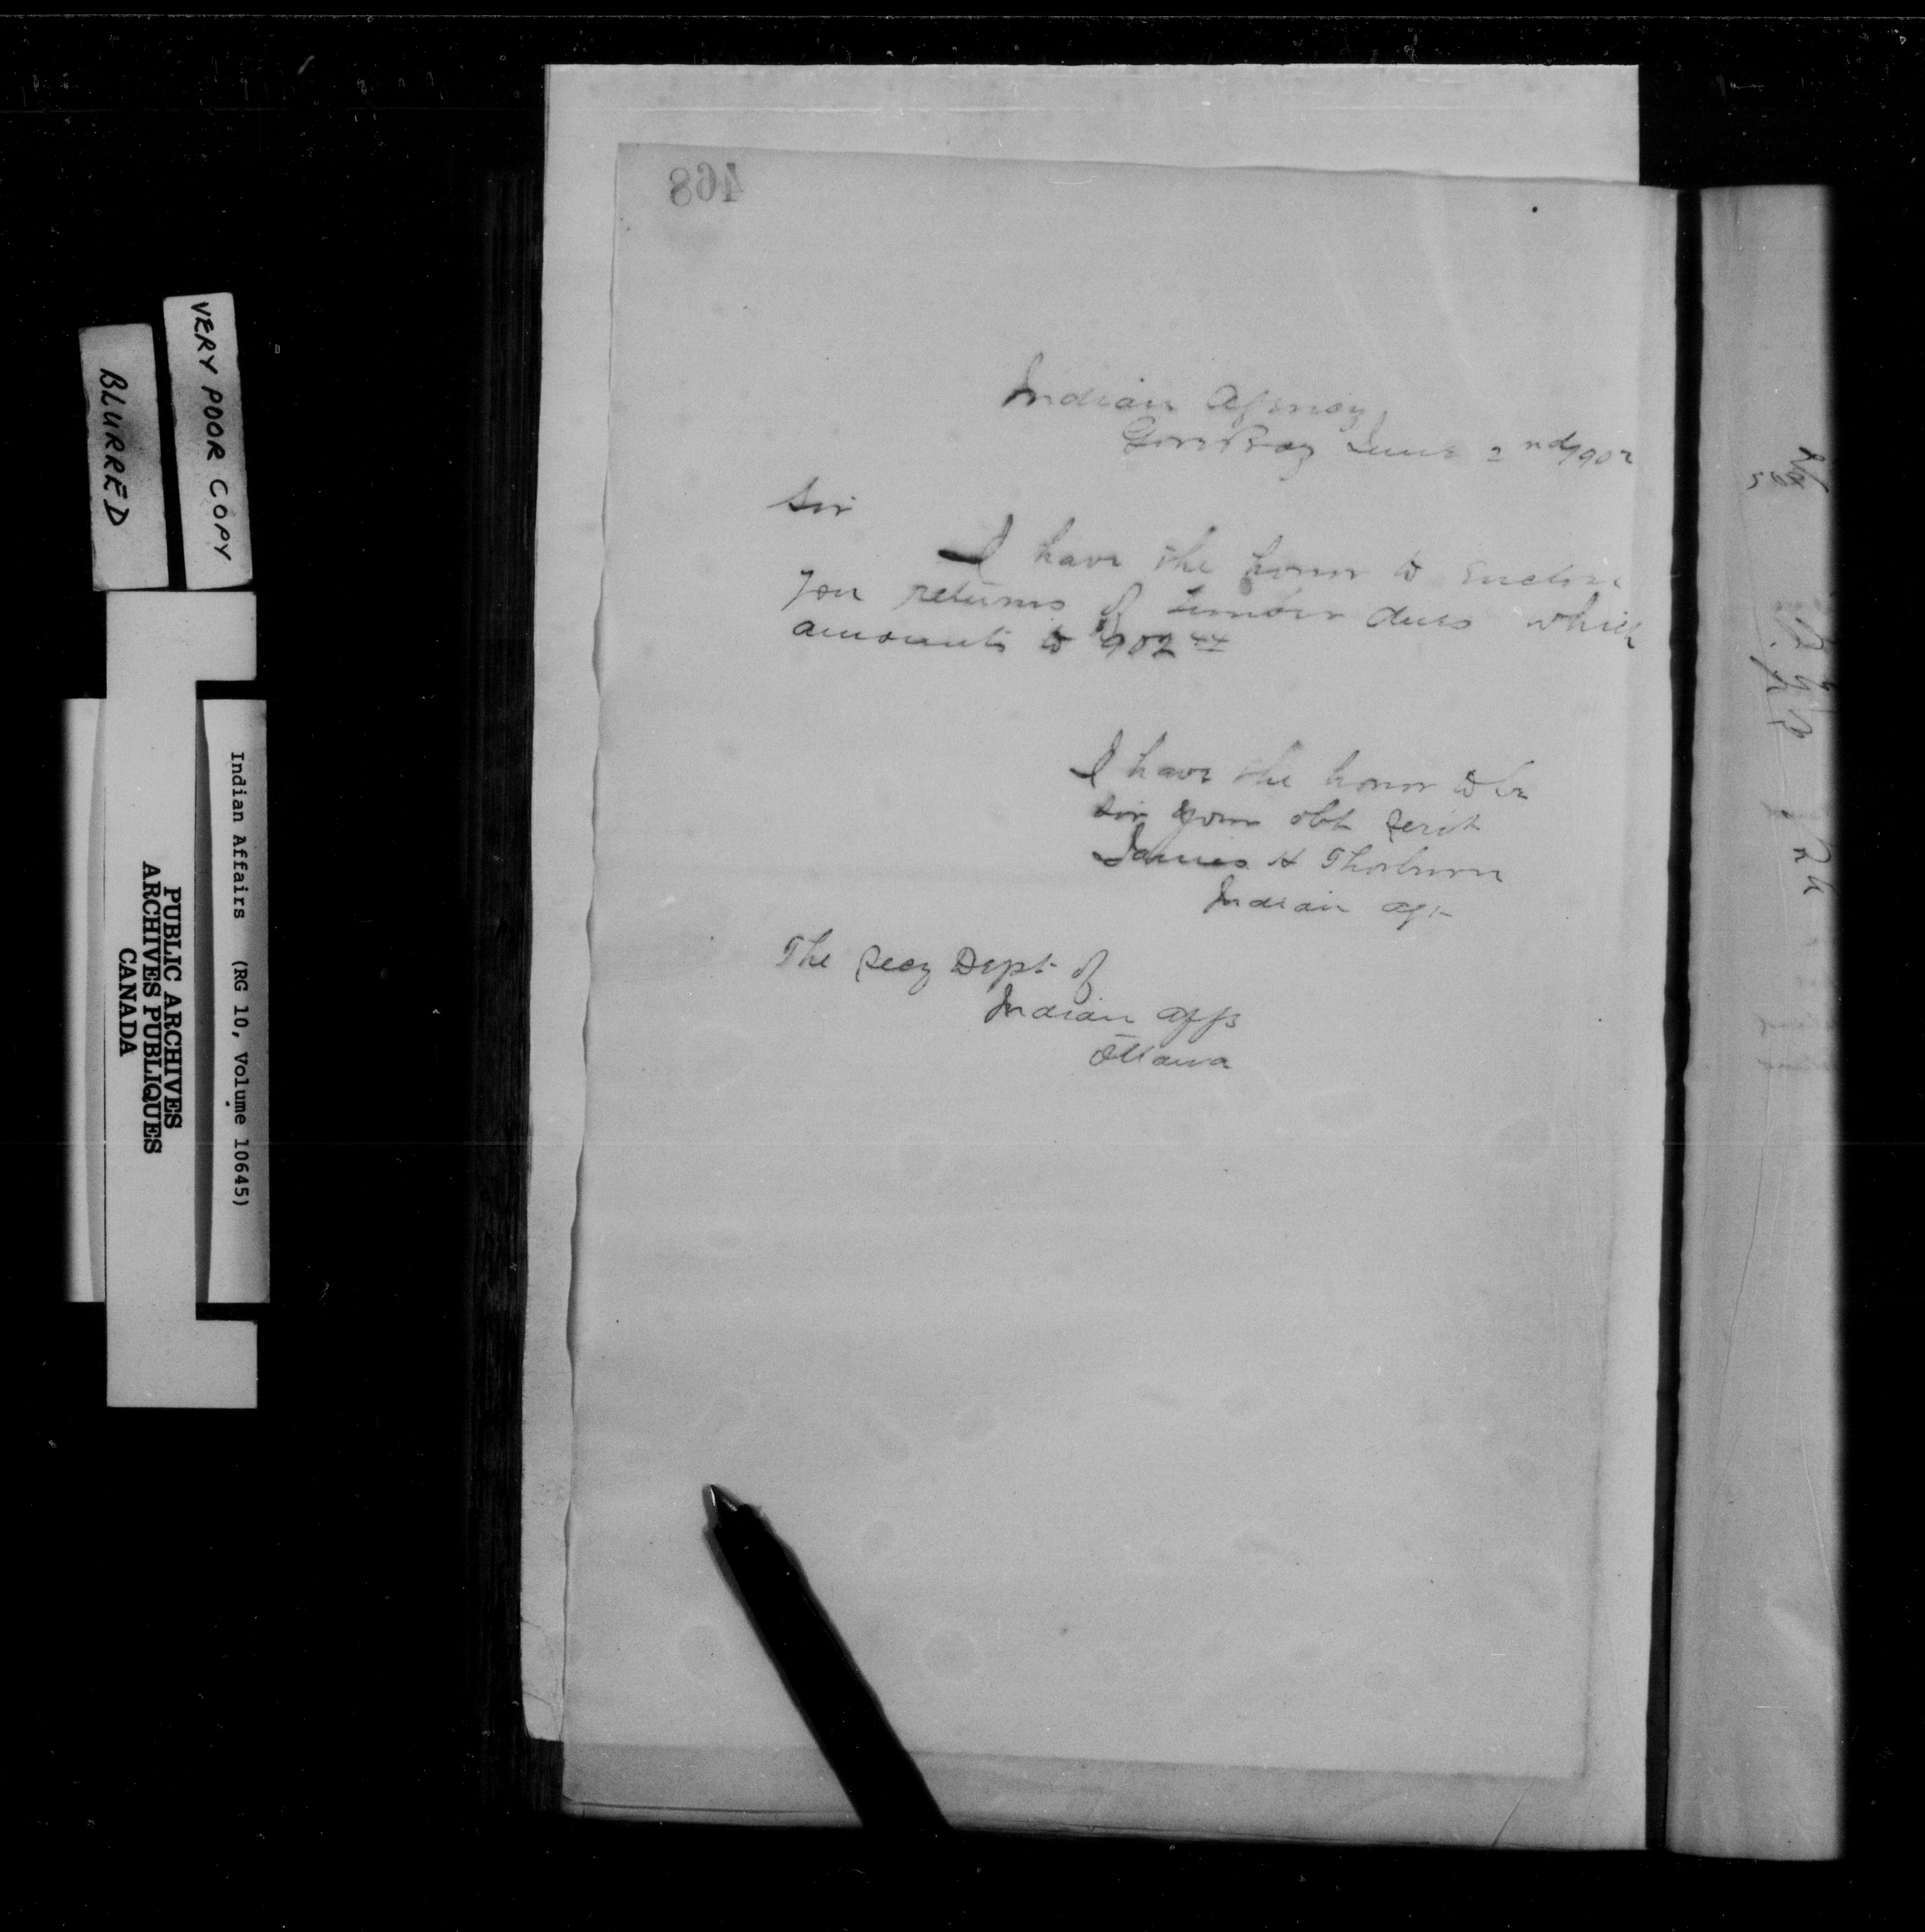 468
Indian Agency,
Gore Bay June 2nd/902
Sir
I have the honor to enclose
you returns of timber dues which
amounts to 902 44
I have the honor to be
Sir your obt servt
James H Thorburn
Indian agt
The Secy Dept of
Indian Affs
Ottawa
VERY POOR COPY
BLURRED
Indian Affairs (RG 10, Volume 10645)
PUBLIC ARCHIVES
ARCHIVES PUBLIQUES
CANADA